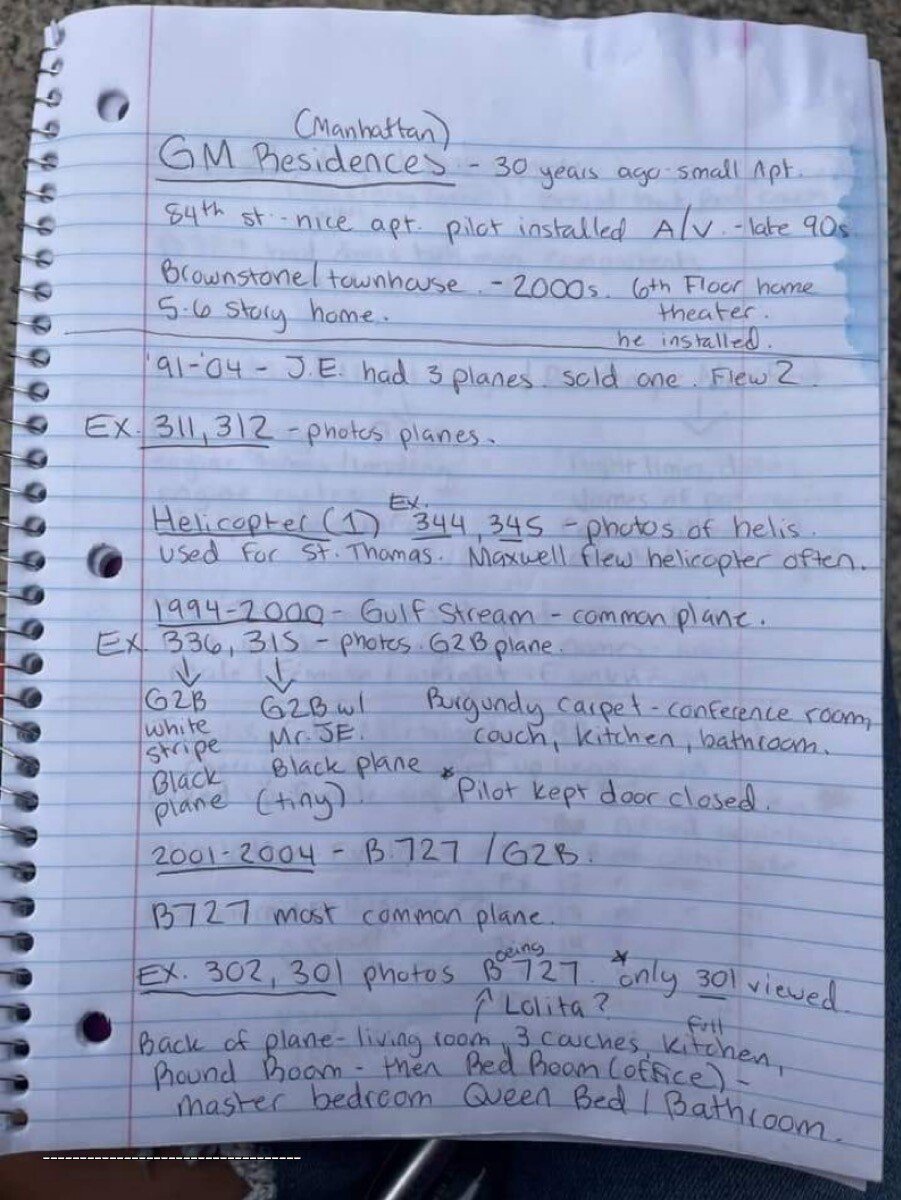 (Manhattan)
GM Residences - 30 years ago - small Apt.
84th st. - nice apt. pilot installed A/V. - late 90s
Brownstone/townhouse - 2000s. 6th Floor home
5-6 story home. theater.
he installed.
'91-'04 - J.E. had 3 planes. sold one. Flew 2.
Ex. 311, 312 - photos planes.
Ex.
Helicopter (1) 344, 345 - photos of helis.
used for St. Thomas. Maxwell flew helicopter often.
1994-2000 - Gulf Stream - common plane.
Ex. 336, 315 - photos. G2B plane.
↓ ↓
G2B G2B w/ Burgundy carpet - conference room,
white Mr. JE. couch, kitchen, bathroom.
stripe
Black Black plane *Pilot kept door closed.
plane (tiny)
2001-2004 - B.727 / G2B.
B727 most common plane.
Ex. 302, 301 photos Boeing 727. *only 301 viewed
↑ Lolita?
full
Back of plane - living room, 3 couches, kitchen,
Round Room - then Bed Room (office) -
master bedroom Queen Bed / Bathroom.